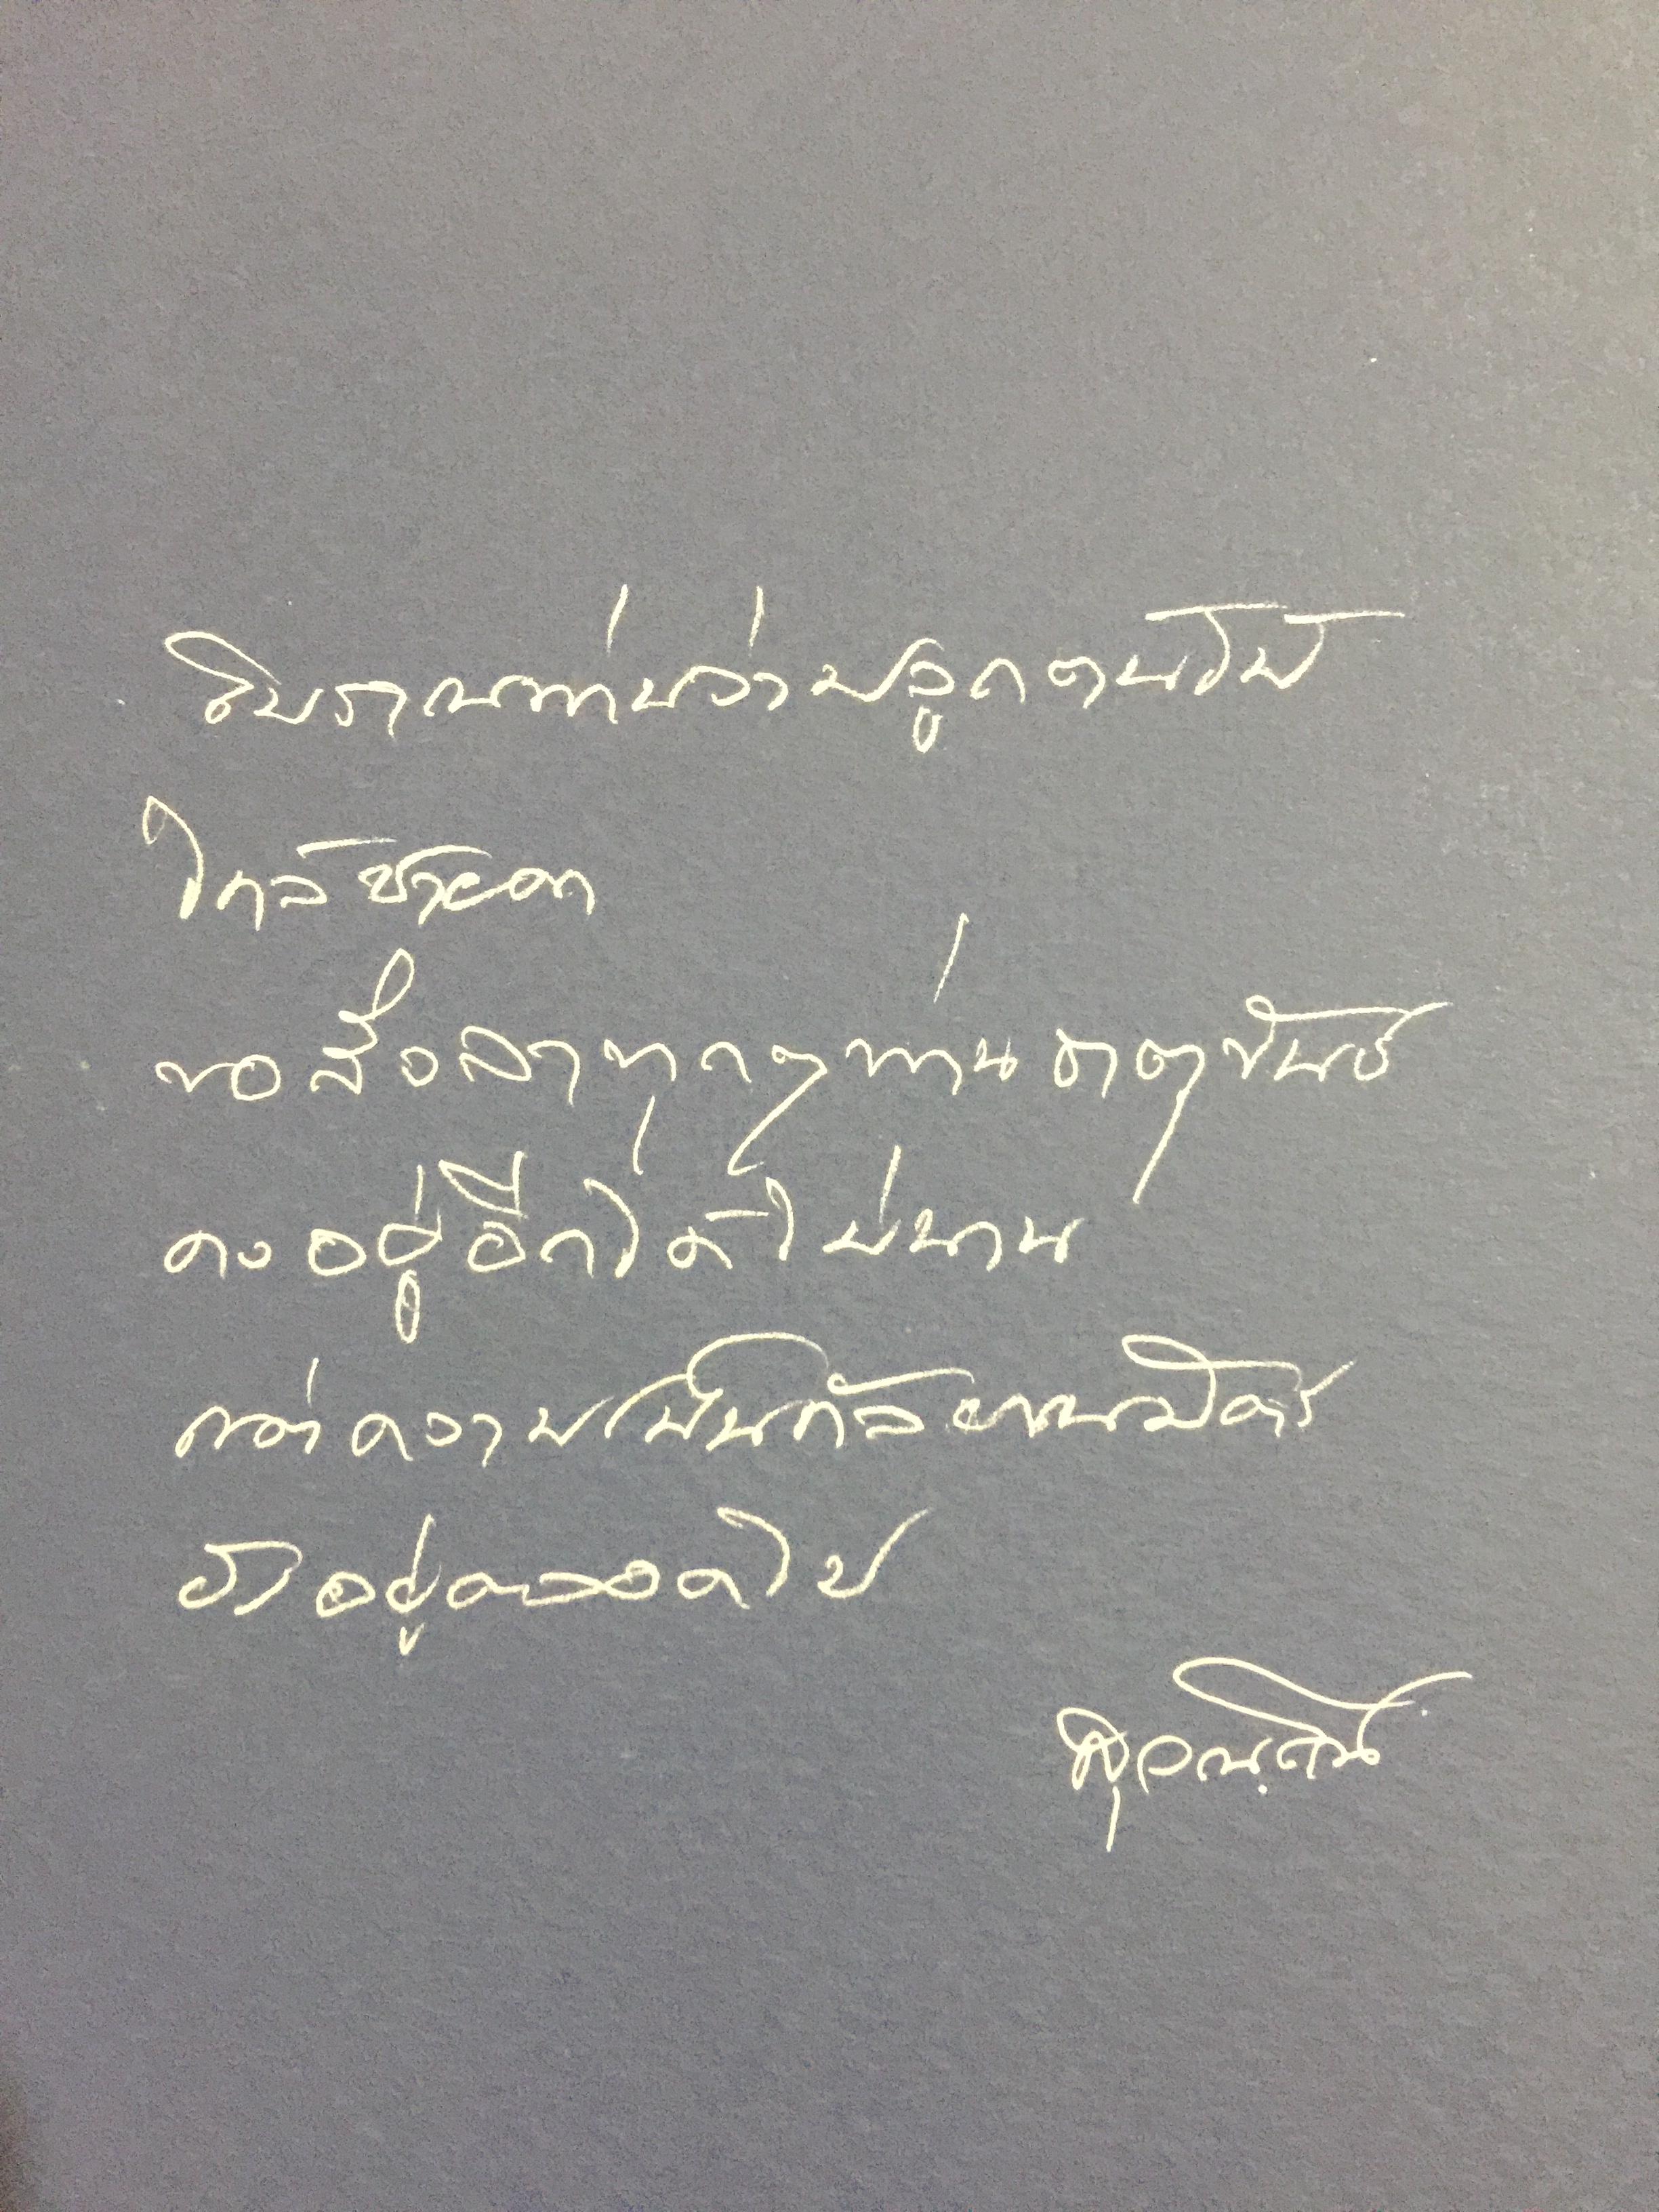 โบราณท่านว่าปลูกต้นไม้
ใกล้ชายตลิ่ง
ขอสั่งลาทุกๆท่าน ธาตุขันธ์
คงอยู่อีกได้ไม่นาน
แต่ความเป็นกัลยาณมิตร
จะอยู่ตลอดไป